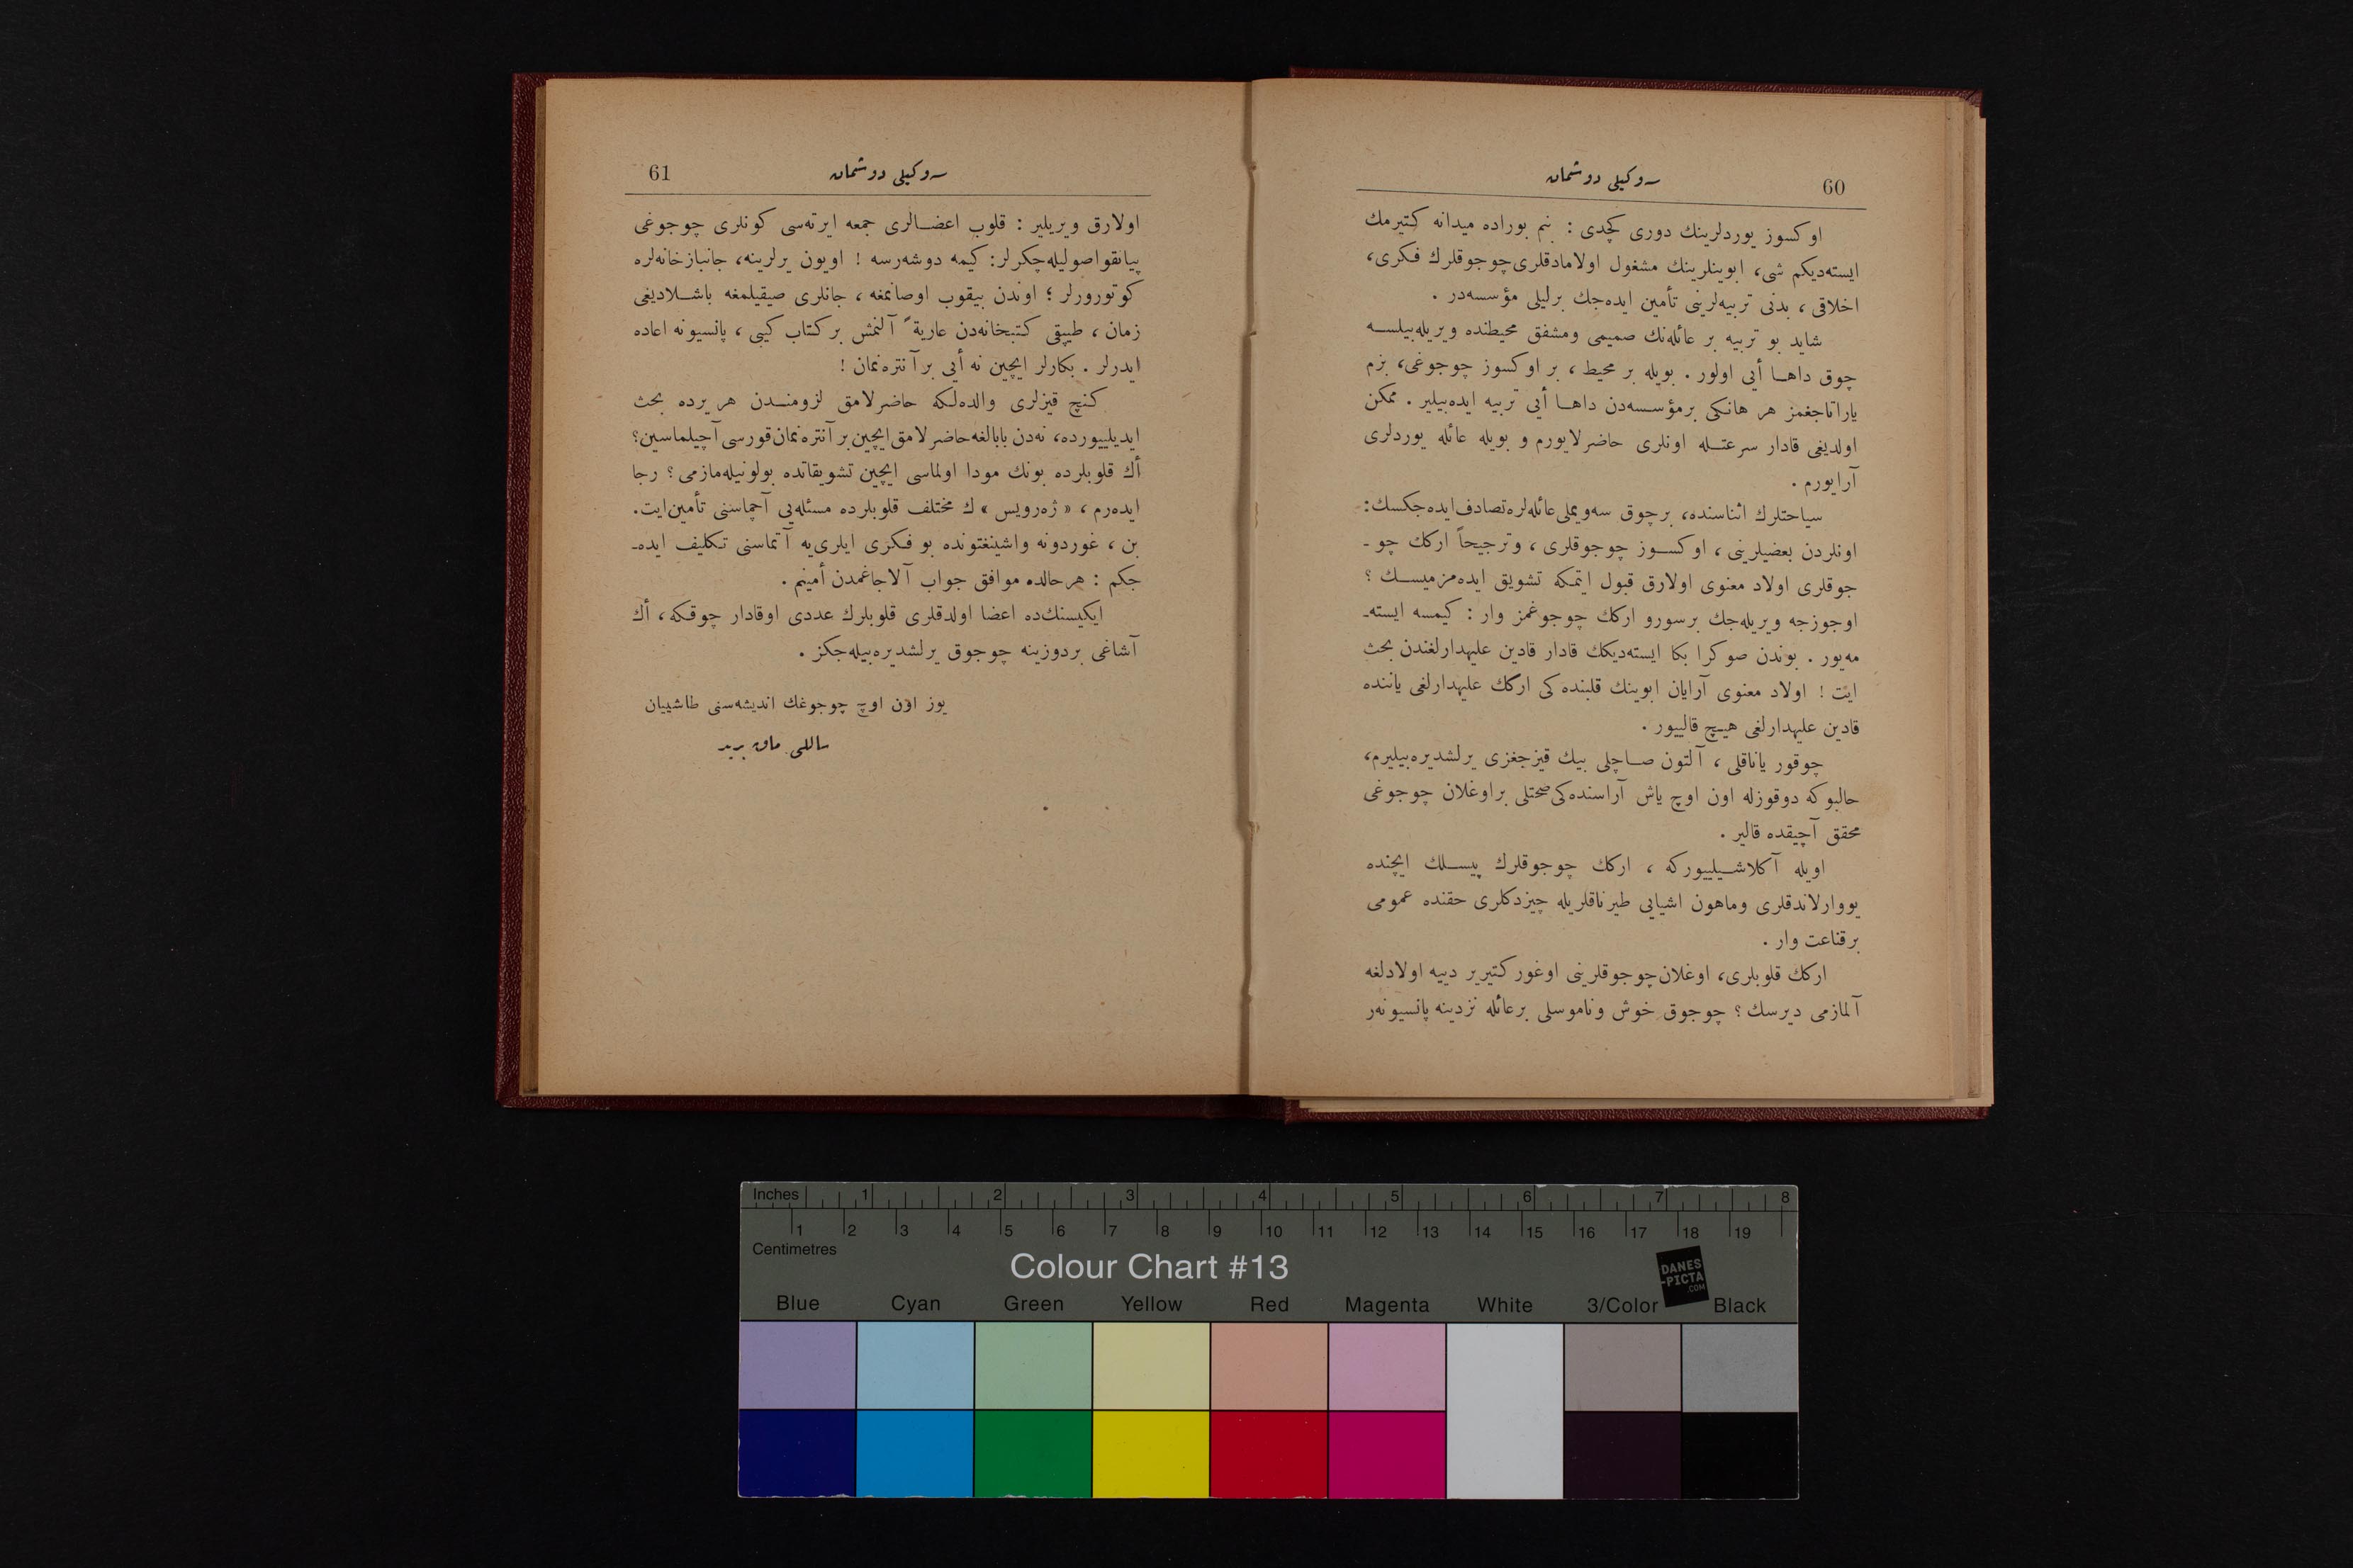 60
سوكيلی دوشمان
اوكسوز يوردلرينك دوری كچدی : بنم بوراده ميدانه كتيرمك
ايسته‌ديكم شی، ابوينلرينك مشغول اولامادقلری چوجوقلرك فكری،
اخلاقی ، بدنی تربيه‌لرينی تأمين ايده‌جك برليلی مؤسسه‌در .
شايد بو تربيه بر عائله‌نك صميمی ومشفق محيطنده ويريله‌بيلسه
چوق داها أيی اولور . بويله بر محيط ، بر اوكسوز چوجوغی، بزم
ياراتاجغمز هر هانكی برمؤسسه‌دن داها أيی تربيه ايده‌بيلير . ممكن
اولديغی قادار سرعتله اونلری حاضرلايورم و بويله عائله يوردلری
آرايورم .
سياحتلرك اثناسنده، برچوق سه‌ويملی عائله‌لره تصادف ايده‌جكسك:
اونلردن بعضيلرينی ، اوكسوز چوجوقلری ، وترجيحاً اركك چو ـ
جوقلری اولاد معنوی اولارق قبول ايتمكه تشويق ايده‌مزميسك ؟
اوجوزجه ويريله‌جك برسورو اركك چوجوغمز وار : كيمسه ايسته‌ـ
مه‌يور . بوندن صوكرا بكا ايسته‌ديكك قادار قادين عليهدارلغندن بحث
ايت ! اولاد معنوی آرايان ابوينك قلبنده كی اركك عليهدارلغی ياننده
قادين عليهدارلغی هيچ قالييور .
چوقور ياناقلی ، آلتون صاچلی بيك قيزجغزی يرلشديره‌بيليرم،
حالبوكه دوقوزله اون اوچ ياش آراسنده‌كی صحتلی براوغلان چوجوغی
محقق آچيقده قالير .
اويله آكلاشيلييوركه ، اركك چوجوقلرك پيسلك ايچنده
يووارلاندقلری وماهون اشيايی طيرناقلريله چيزدكلری حقنده عمومی
برقناعت وار .
اركك قلوبلری، اوغلان چوجوقلرينی اوغور كتيرير دييه اولادلغه
آلمازمی ديرسك ؟ چوجوق خوش وناموسلی برعائله نزدينه پانسيونه‌ر
61
سوكيلی دوشمان
اولارق ويريلير : قلوب اعضالری جمعه ايرته‌سی كونلری چوجوغی
پيانقواصوليله‌چكرلر: كيمه دوشه‌رسه ! اويون يرلرينه، جانبازخانه‌لره
كوتورورلر ؛ اوندن بيقوب اوصانمغه ، جانلری صيقيلمغه باشلاديغی
زمان ، طيپقی كتبخانه‌دن عاريةً آلنمش بر كتاب كيبی ، پانسيونه اعاده
ايدرلر . بكارلر ايچين نه أيی بر آنتره‌نمان !
كنچ قيزلری والده‌لكه حاضرلامق لزومندن هر يرده بحث
ايديلييورده، نه‌دن بابالغه حاضرلامق ايچين بر آنتره‌نمان قورسی آچيلماسين؟
أك قلوبلرده بونك مودا اولماسی ايچين تشويقاتده بولونيله‌مازمی ؟ رجا
ايده‌رم ، « ژه‌رويس » ك مختلف قلوبلرده مسئله‌يی آچماسنی تأمين ايت.
بن ، غوردونه واشينغتونده بو فكری ايلری‌يه آتماسنی تكليف ايده‌ـ
جكم : هرحالده موافق جواب آلاجاغمدن أمينم .
ايكيسنك‌ده اعضا اولدقلری قلوبلرك عددی اوقادار چوقكه ، أك
آشاغی بردوزينه چوجوق يرلشديره‌بيله‌جكز .
يوز اون اوچ چوجوغك انديشه‌سنی طاشييان
ساللی ماق بريد
Inches 1 2 3 4 5 6 7 8
1 2 3 4 5 6 7 8 9 10 11 12 13 14 15 16 17 18 19
Centimetres
Colour Chart #13
DANES
-PICTA
.COM
Blue Cyan Green Yellow Red Magenta White 3/Color Black